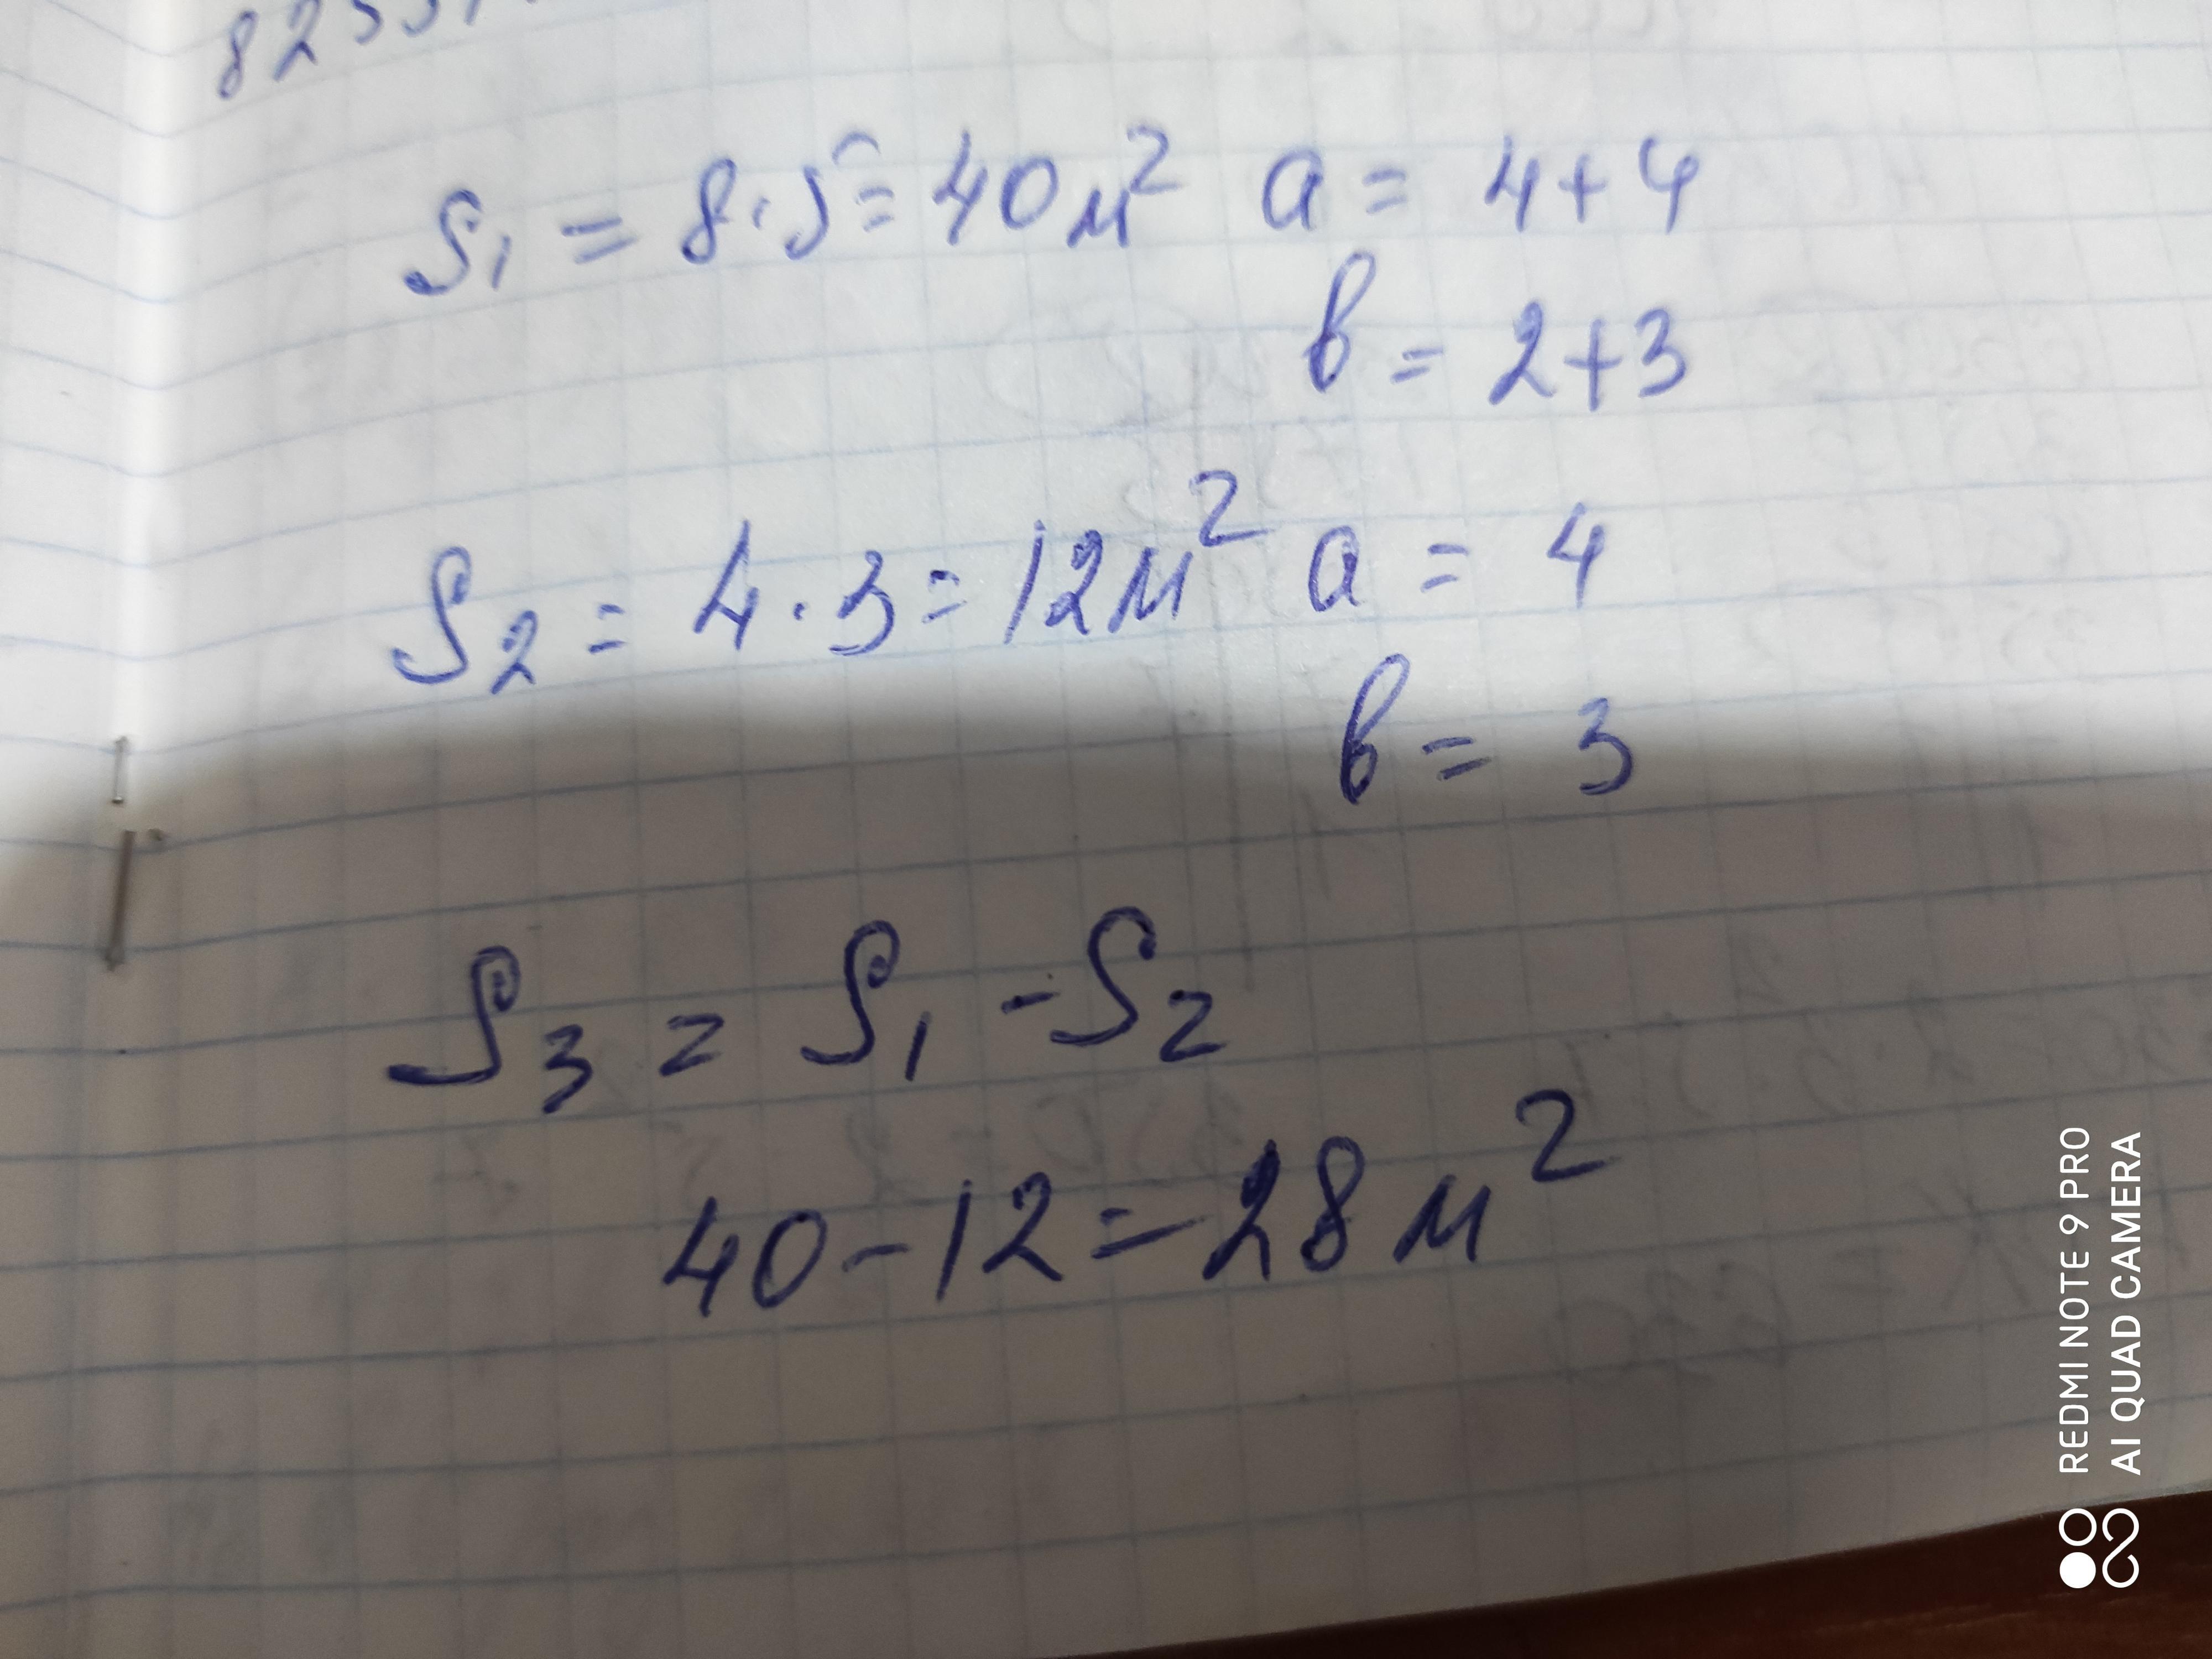 S₁ = 8·5 = 40 м² a = 4+4
в = 2+3
S₂ = 4·3 = 12 м² a = 4
в = 3
S₃ = S₁ - S₂
40-12=28 м²
REDMI NOTE 9 PRO
AI QUAD CAMERA